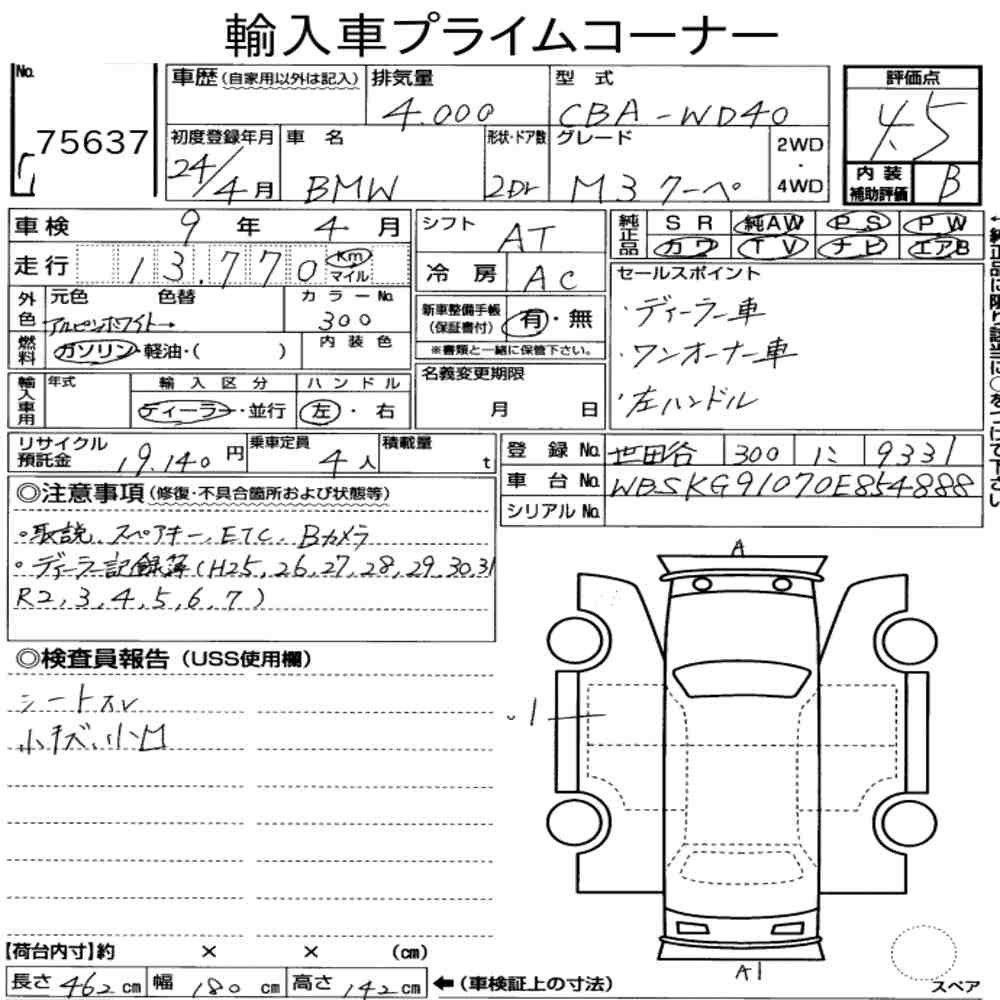 輸入車プライムコーナー
No. 75637
車歴(自家用以外は記入) 排気量 4.000 型式 CBA-WD40
初度登録年月 24/4月 車名 BMW 形状・ドア数 2Dr グレード M3 クーペ 2WD・4WD
評価点 4.5
内装補助評価 B
車検 9年 4月
走行 13.770 km マイル
外色 元色 アルピンホワイト→ 色替 カラーNo. 300
燃料 ガソリン・軽油・( ) 内装色
輸入車用 年式 輸入区分 ディーラー・並行 ハンドル 左・右
シフト AT
冷房 AC
新車整備手帳(保証書付) 有・無
※書類と一緒に保管下さい。
名義変更期限 月 日
純正品 SR 純AW PS PW
カワ TV ナビ エアB
←純正品に限り該当に○をつけて下さい
セールスポイント
・ディーラー車
・ワンオーナー車
・左ハンドル
リサイクル預託金 19.140円 乗車定員 4人 積載量 t
登録No. 世田谷 300 に 9331
車台No. WBSKG91070E854888
シリアルNo.
◎注意事項(修復・不具合箇所および状態等)
・取説、スペアキー、ETC、Bカメラ
・ディーラー記録簿(H25,26,27,28,29,30,31
R2,3,4,5,6,7)
◎検査員報告(USS使用欄)
シートスレ
小キズ、小凹
A
・1
A1
スペア
【荷台内寸】約 × × (cm)
長さ 462 cm 幅 180 cm 高さ 142 cm ←(車検証上の寸法)